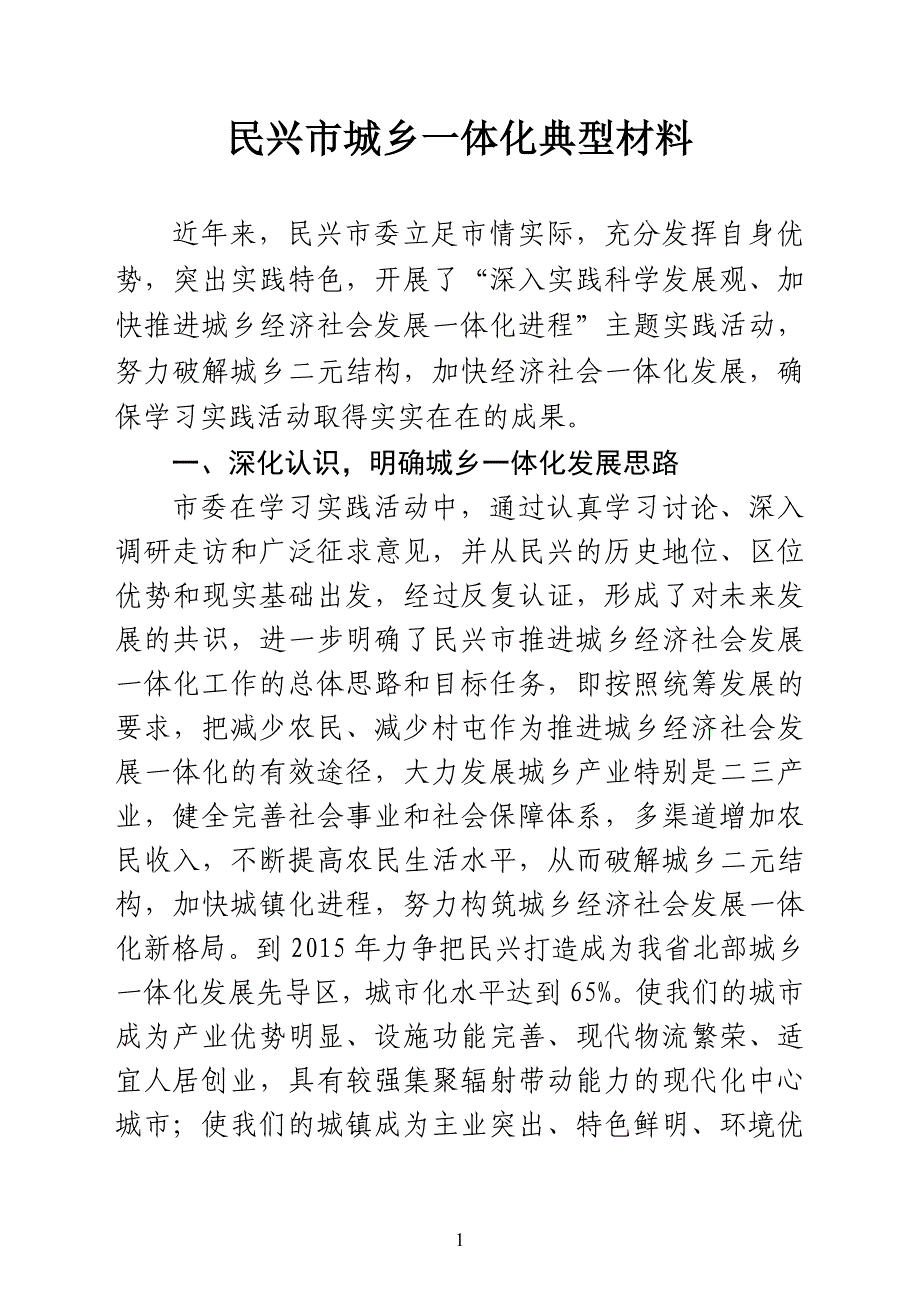 民兴市城乡一体化典型材料
近年来，民兴市委立足市情实际，充分发挥自身优
势，突出实践特色，开展了“深入实践科学发展观、加
快推进城乡经济社会发展一体化进程”主题实践活动，
努力破解城乡二元结构，加快经济社会一体化发展，确
保学习实践活动取得实实在在的成果。
一、深化认识，明确城乡一体化发展思路
市委在学习实践活动中，通过认真学习讨论、深入
调研走访和广泛征求意见，并从民兴的历史地位、区位
优势和现实基础出发，经过反复认证，形成了对未来发
展的共识，进一步明确了民兴市推进城乡经济社会发展
一体化工作的总体思路和目标任务，即按照统筹发展的
要求，把减少农民、减少村屯作为推进城乡经济社会发
展一体化的有效途径，大力发展城乡产业特别是二三产
业，健全完善社会事业和社会保障体系，多渠道增加农
民收入，不断提高农民生活水平，从而破解城乡二元结
构，加快城镇化进程，努力构筑城乡经济社会发展一体
化新格局。到 2015 年力争把民兴打造成为我省北部城乡
一体化发展先导区，城市化水平达到 65%。使我们的城市
成为产业优势明显、设施功能完善、现代物流繁荣、适
宜人居创业，具有较强集聚辐射带动能力的现代化中心
城市；使我们的城镇成为主业突出、特色鲜明、环境优
1